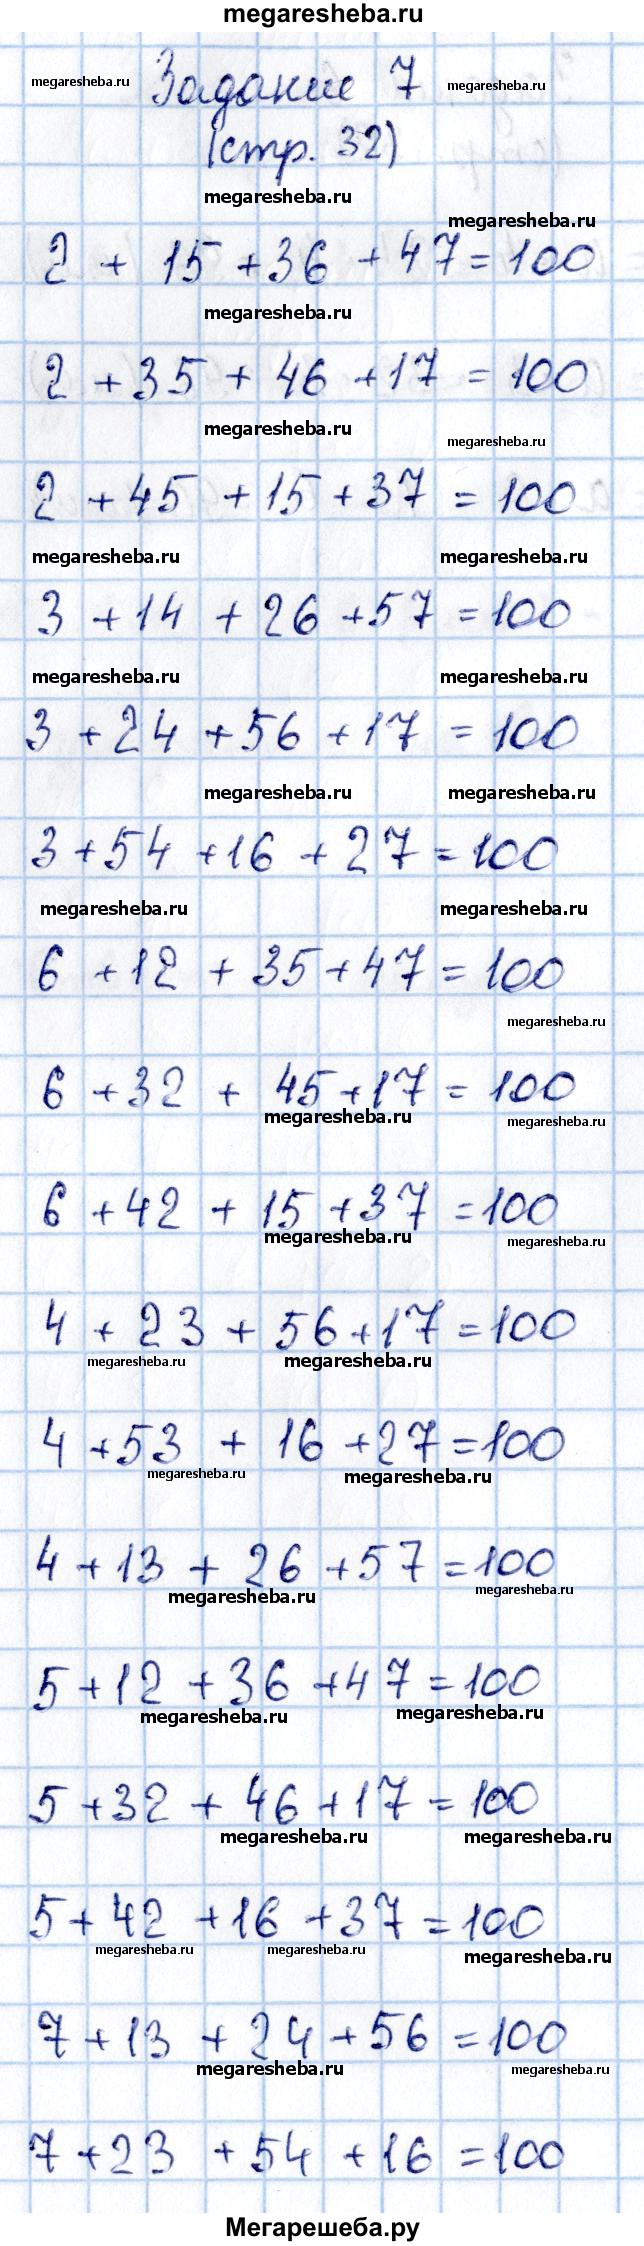 megaresheba.ru
megaresheba.ru Задание 7 megaresheba.ru
(стр. 32)
megaresheba.ru
megaresheba.ru
2 + 15 + 36 + 47 = 100
megaresheba.ru
2 + 35 + 46 + 17 = 100
megaresheba.ru
megaresheba.ru
2 + 45 + 15 + 37 = 100
megaresheba.ru megaresheba.ru
3 + 14 + 26 + 57 = 100
megaresheba.ru megaresheba.ru
3 + 24 + 56 + 17 = 100
megaresheba.ru megaresheba.ru
3 + 54 + 16 + 27 = 100
megaresheba.ru megaresheba.ru
6 + 12 + 35 + 47 = 100
megaresheba.ru
6 + 32 + 45 + 17 = 100
megaresheba.ru megaresheba.ru
6 + 42 + 15 + 37 = 100
megaresheba.ru megaresheba.ru
4 + 23 + 56 + 17 = 100
megaresheba.ru megaresheba.ru
4 + 53 + 16 + 27 = 100
megaresheba.ru megaresheba.ru
4 + 13 + 26 + 57 = 100
megaresheba.ru megaresheba.ru
5 + 12 + 36 + 47 = 100
megaresheba.ru megaresheba.ru
5 + 32 + 46 + 17 = 100
megaresheba.ru megaresheba.ru
5 + 42 + 16 + 37 = 100
megaresheba.ru megaresheba.ru megaresheba.ru
7 + 13 + 24 + 56 = 100
megaresheba.ru megaresheba.ru
7 + 23 + 54 + 16 = 100
Мегарешеба.ру